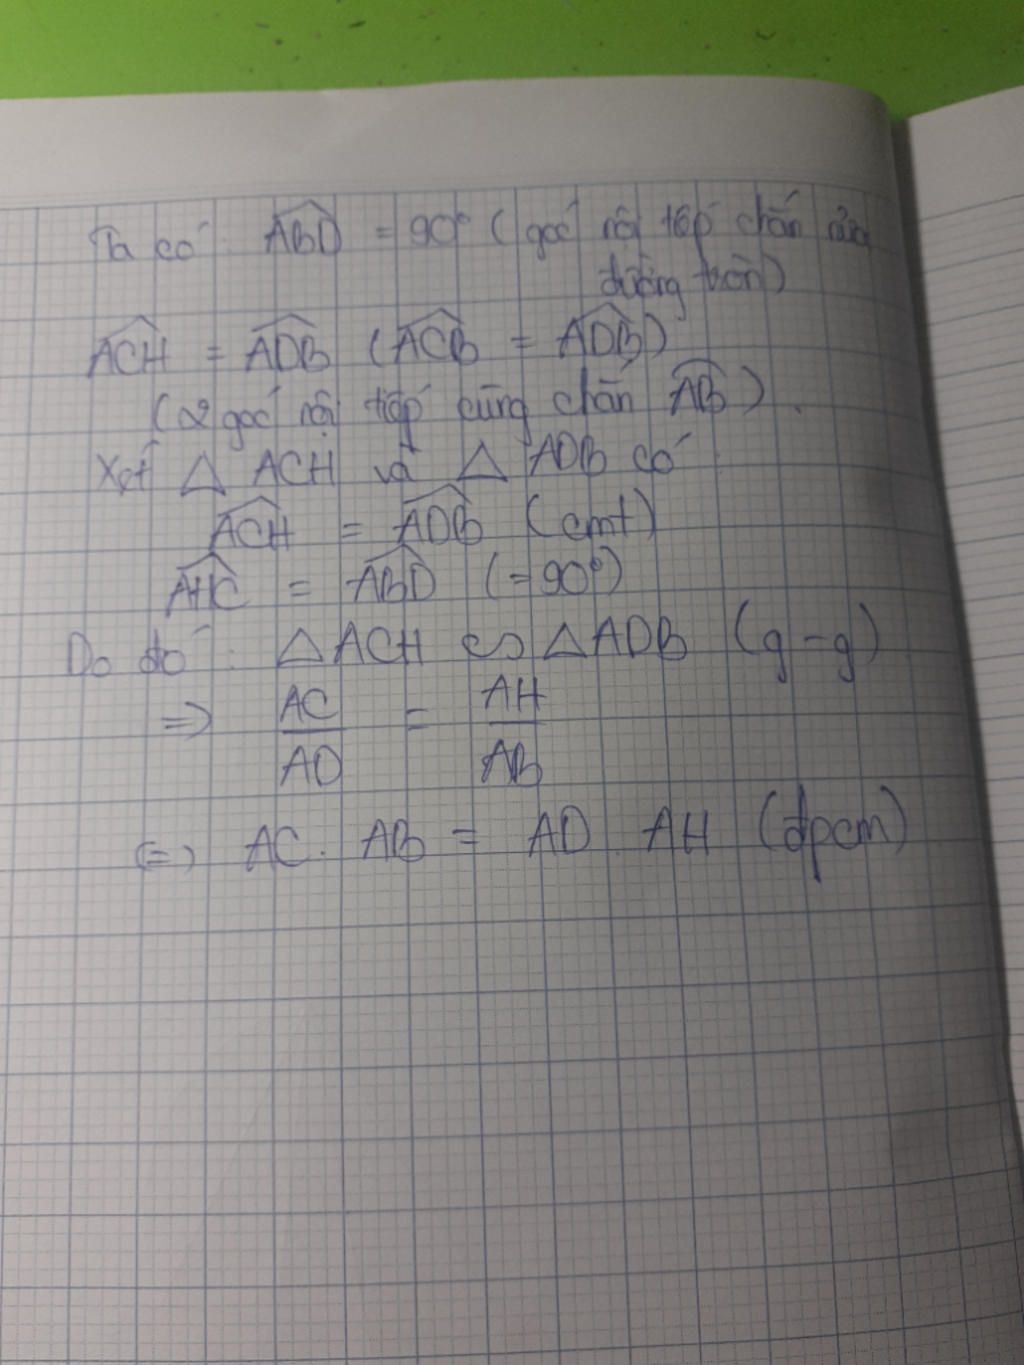 Ta có: ABD = 90° (góc nội tiếp chắn nửa
đường tròn)
ACH = ADB (ACB = ADB)
(2 góc nội tiếp cùng chắn AB).
Xét △ ACH và △ ADB có
ACH = ADB (cmt)
AHC = ABD (=90°)
Do đó: △ACH ∽ △ADB (g-g)
=> AC/AD = AH/AB
<=> AC. AB = AD. AH (đpcm)